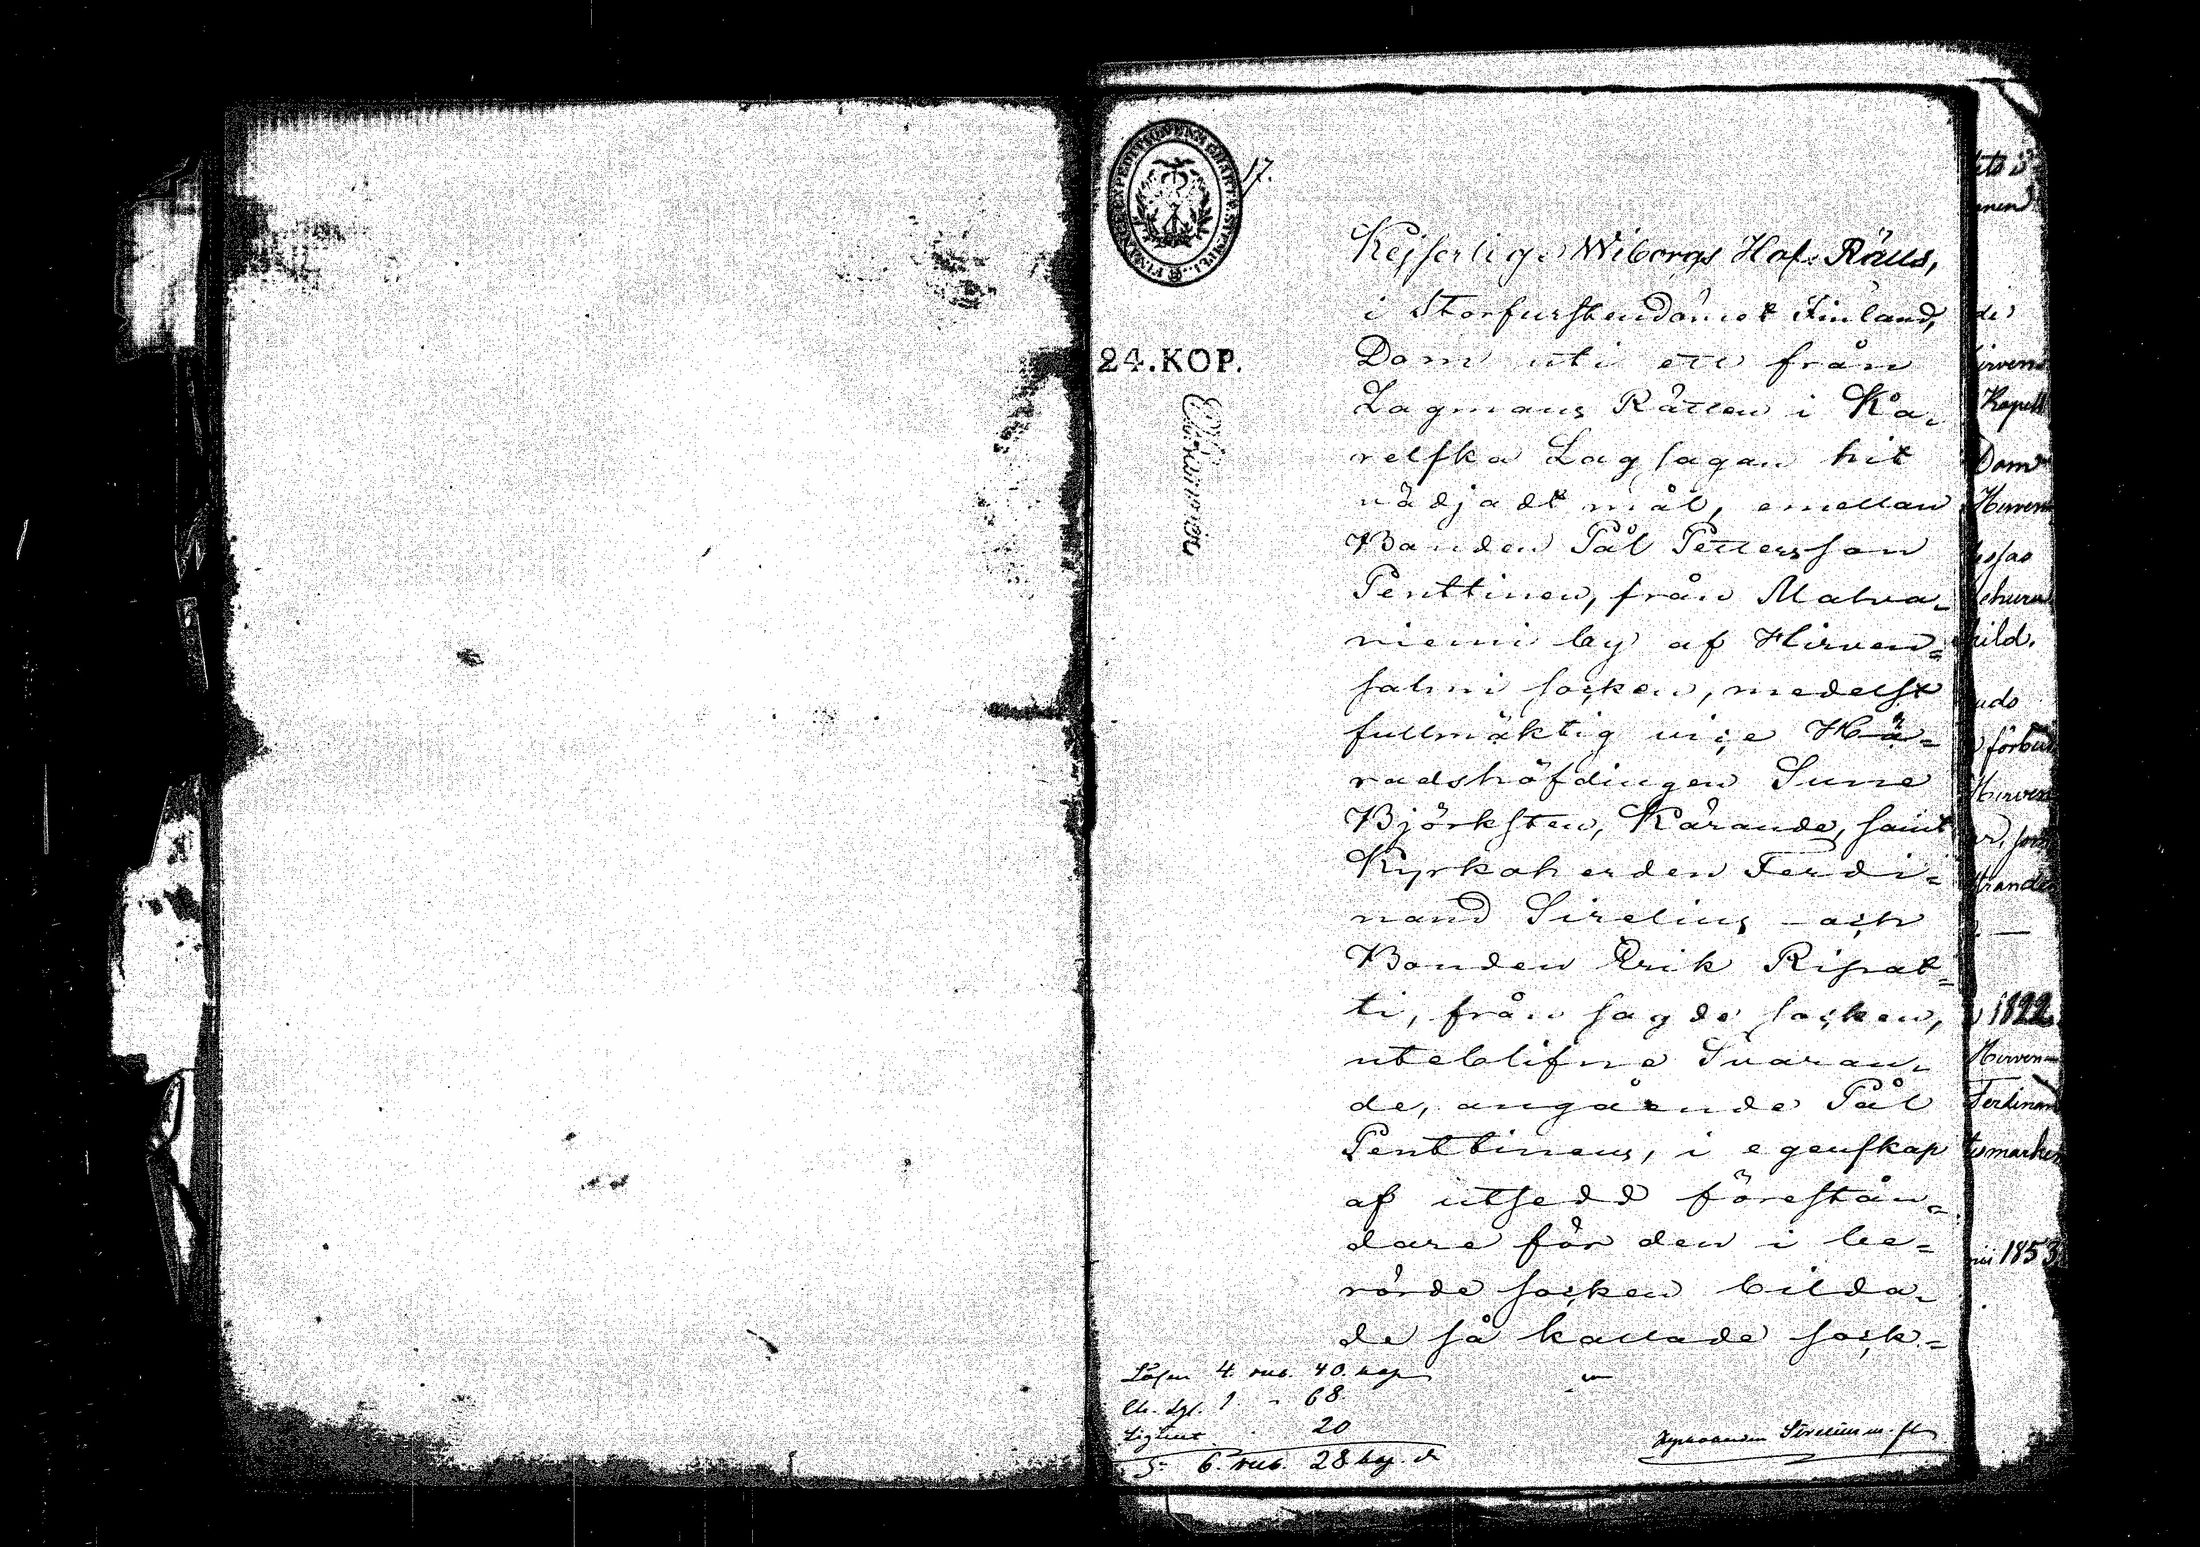 17.
Kejserlige Wiborgs Hof-Rätts,
i Storfurstendömet Finland,
24.KOP.
Dom uti ett från
Lagmans Rätten i Ka-
relska Lagsagan hit
vädjadt mål, emellan
Bonden Pål Pettersson
Penttinen, från Malva-
niemi by af Hirven=
salmi socken, medelst
fullmäktig vice Hä=
radshöfdingen Sune
Björksten, Kärande, samt
Kyrkoherden Ferdi=
nand Sirelius och
Bonden Erik Ripat=
ti, från sagde socken,
uteblifne Svaran-
de, angående Pål
Penttinens, i egenskap
af utsedd förestån=
dare för den i be=
rörde socken bilda-
de så kallade sock=
Lösen 4. rub. 40. kop
Ch. Sgl. 1 " 68.
Sigillet " 20
S:a 6. rub. 28 kop. S
Kyrkoherden Sirelius m. fl.
1822
Hirven=
Ferdinan
1853.
Kapell
Dom